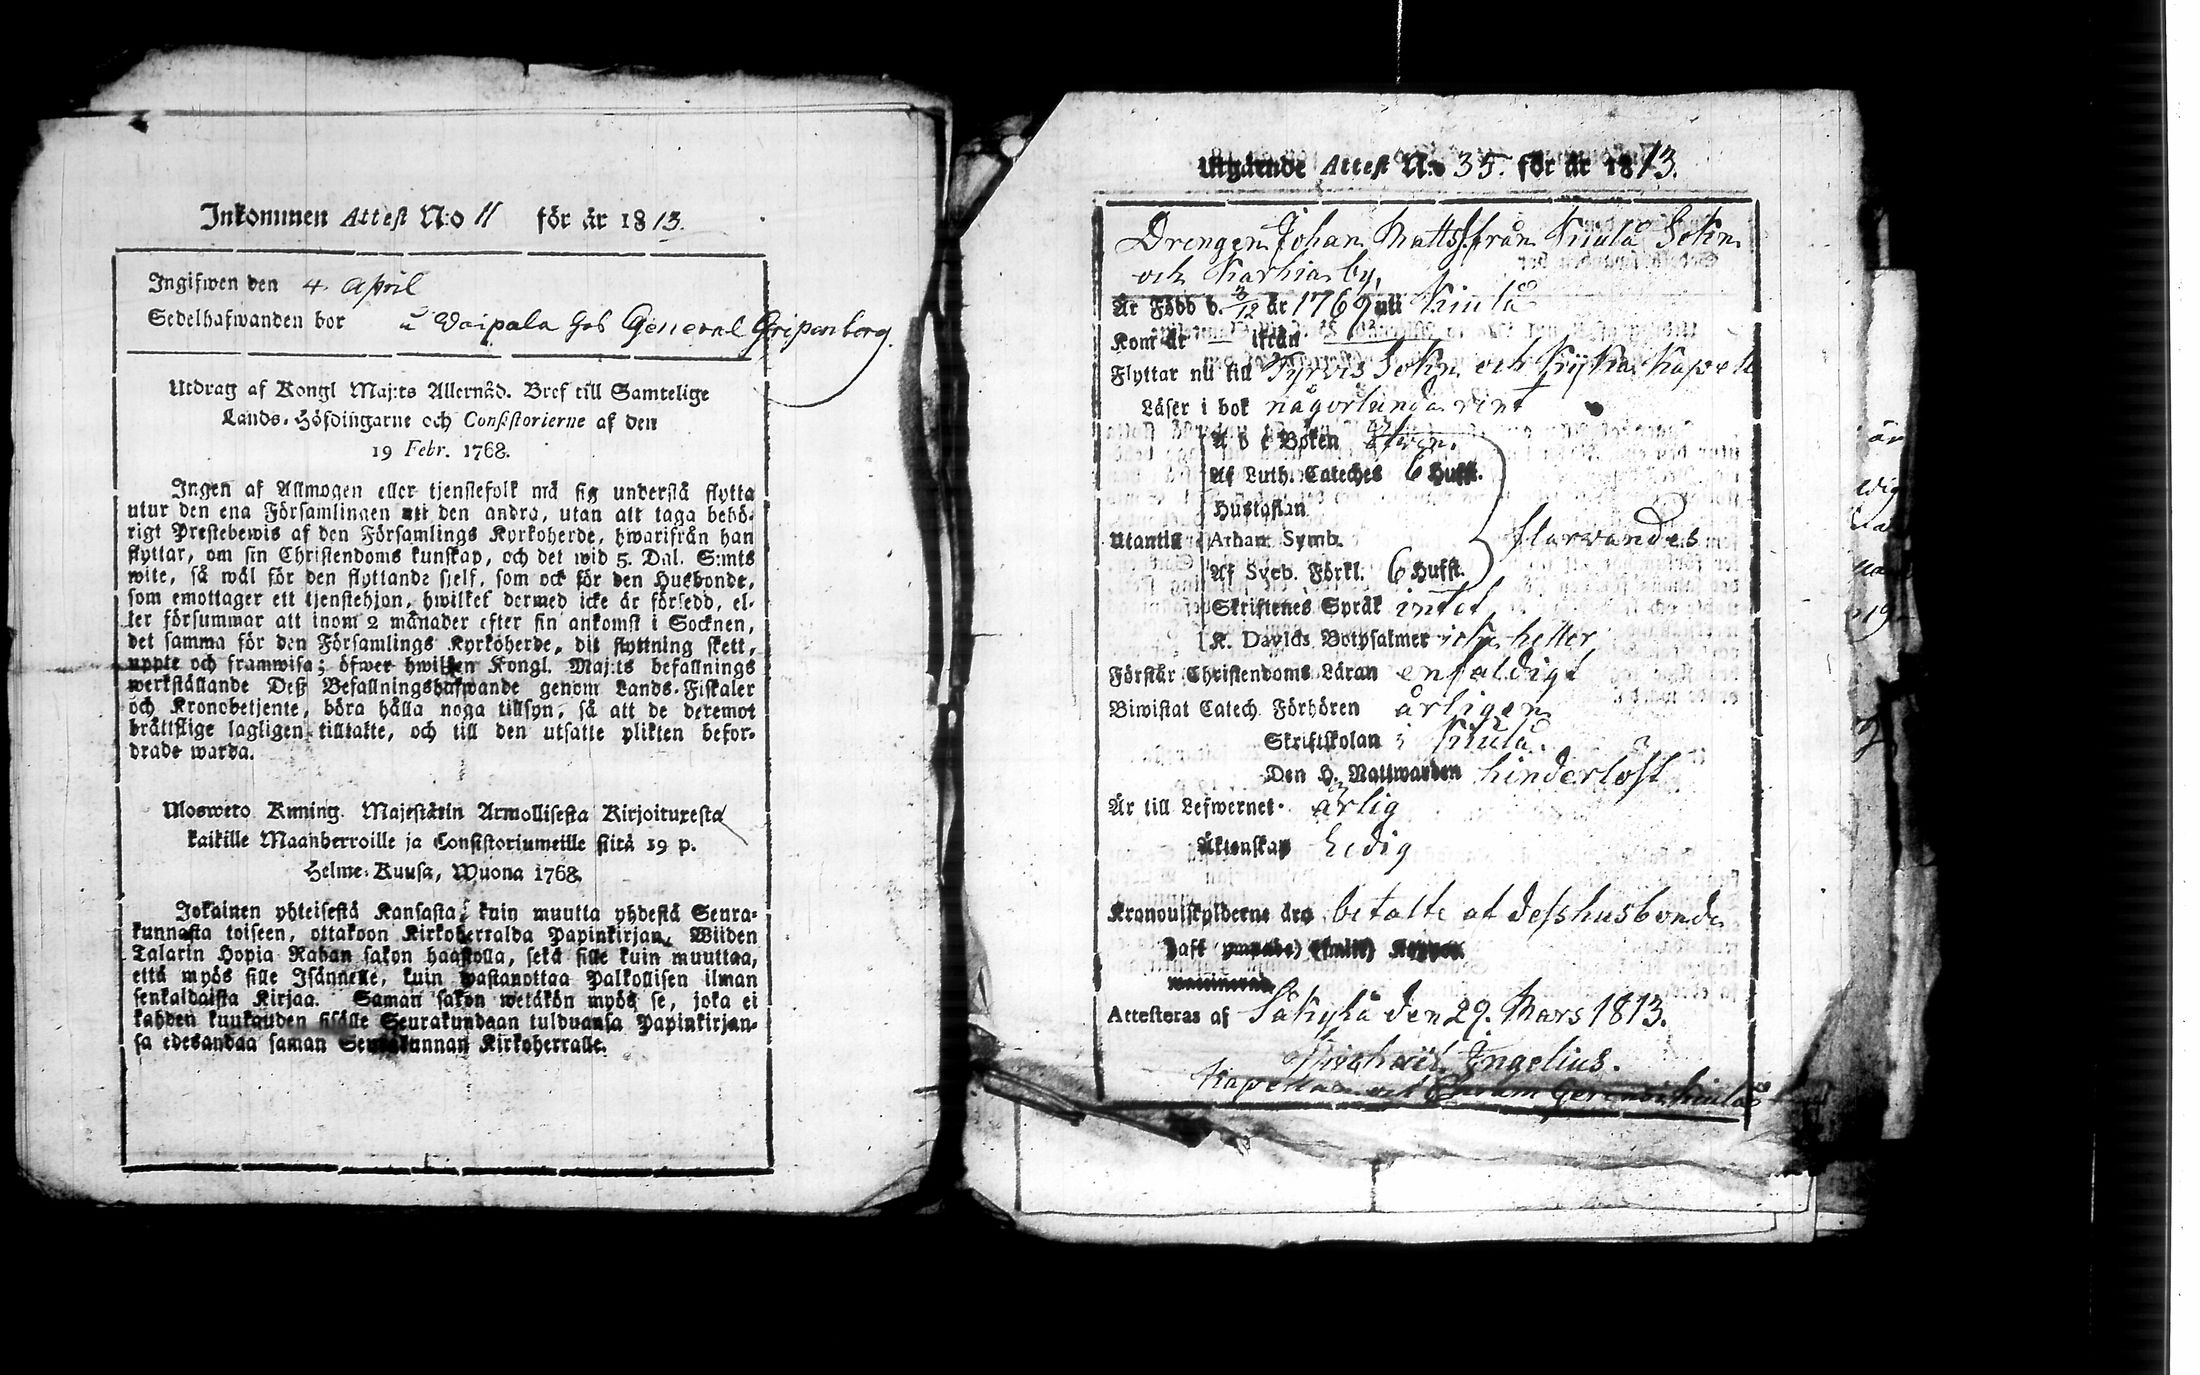 Inkommen Attest N:o 11 för år 1813.
Ingifwen den 4 April
Sedelhafwanden bor å Woipala hos General Gripenberg.
Utdrag af Kongl Maj:ts Allernåd. Bref till Samtelige
Lands-Höfdingarne och Consistorierne af den
19 Febr. 1768.
Ingen af Allmogen eller tjenstefolk må sig understå flytta
utur den ena Församlingen uti den andra, utan att taga behö-
rigt Prestebewis af den Församlings Kyrkoherde, hwarifrån han
flyttar, om sin Christendoms kunskap, och det wid 5. Dal. S:mts
wite, så wäl för den flyttande sjelf, som ock för den Husbonde,
som emottager ett tjenstehjon, hwilket dermed icke är försedd, el-
ler försummar att inom 2 månader efter sin ankomst i Socknen,
det samma för den Församlings Kyrkoherde, dit flyttning skett,
uppte och framwisa; öfwer hwilken Kongl. Maj:ts befallnings
werkställande Deß Befallningshafwande genom Lands-Fiskaler
och Kronobetjente, böra hålla noga tillsyn, så att de deremot
bråttslige lagligen tilltalte, och till den utsatte plikten befor-
drade warda.
Ulosweto Kuning. Majestätin Armollisesta Kirjoituxesta
kaikille Maanherroille ja Consistoriumeille siitä 19 p.
Helme-Kuusa, Wuona 1768.
Jokainen yhteisestä Kansasta, kuin muutta yhdestä Seura-
kunnasta toiseen, ottakoon Kirkoherralda Papinkirjan, Wiiden
Talarin Hopia Rahan sakon haastolla, sekä sille kuin muuttaa,
että myös sille Isännelle, kuin wastanottaa Palkollisen ilman
senkaldaista Kirjaa. Saman sakon wetäkön myös se, joka ei
kahden kuukauden sisälle Seurakundaan tulduansa Papinkirjan-
sa edesandaa saman Seurakunnan Kirkoherralle.
Utgående Attest N:o 35. för år 1813.
Drengen Johan Matts f. från Kiulå Sokn
och Karhia by,
Är Född d. 3/12 år 1769 uti Kiulå
Kom år ifrån
Flyttar nu till Tyrvis Sokn och Kijka Kapell
Läser i bok någorlunda rent
A b c Boken
Af Luth. Cateches 6 Hufst.
Hustaflan
Utantill Athan. Symb. starvandes
Af Sveb. Förkl. 6 Hufst.
Skriftenes Språk intet
K. Davids Botpsalmer icke heller
Förstår Christendoms Läran enfaldigt
Biwistat Catech. Förhören årligen
Skriftskolan i Kiulå.
Den H. Nattwarden hinderlöst
Är till Lefwernet ärlig
Äktenskap Ledig
Kronoutskylderne äro betalte af desshusbonde
Haft
Attesteras af Säkylä den 29. Mars 1813.
Michael Engelius.
Kapellan